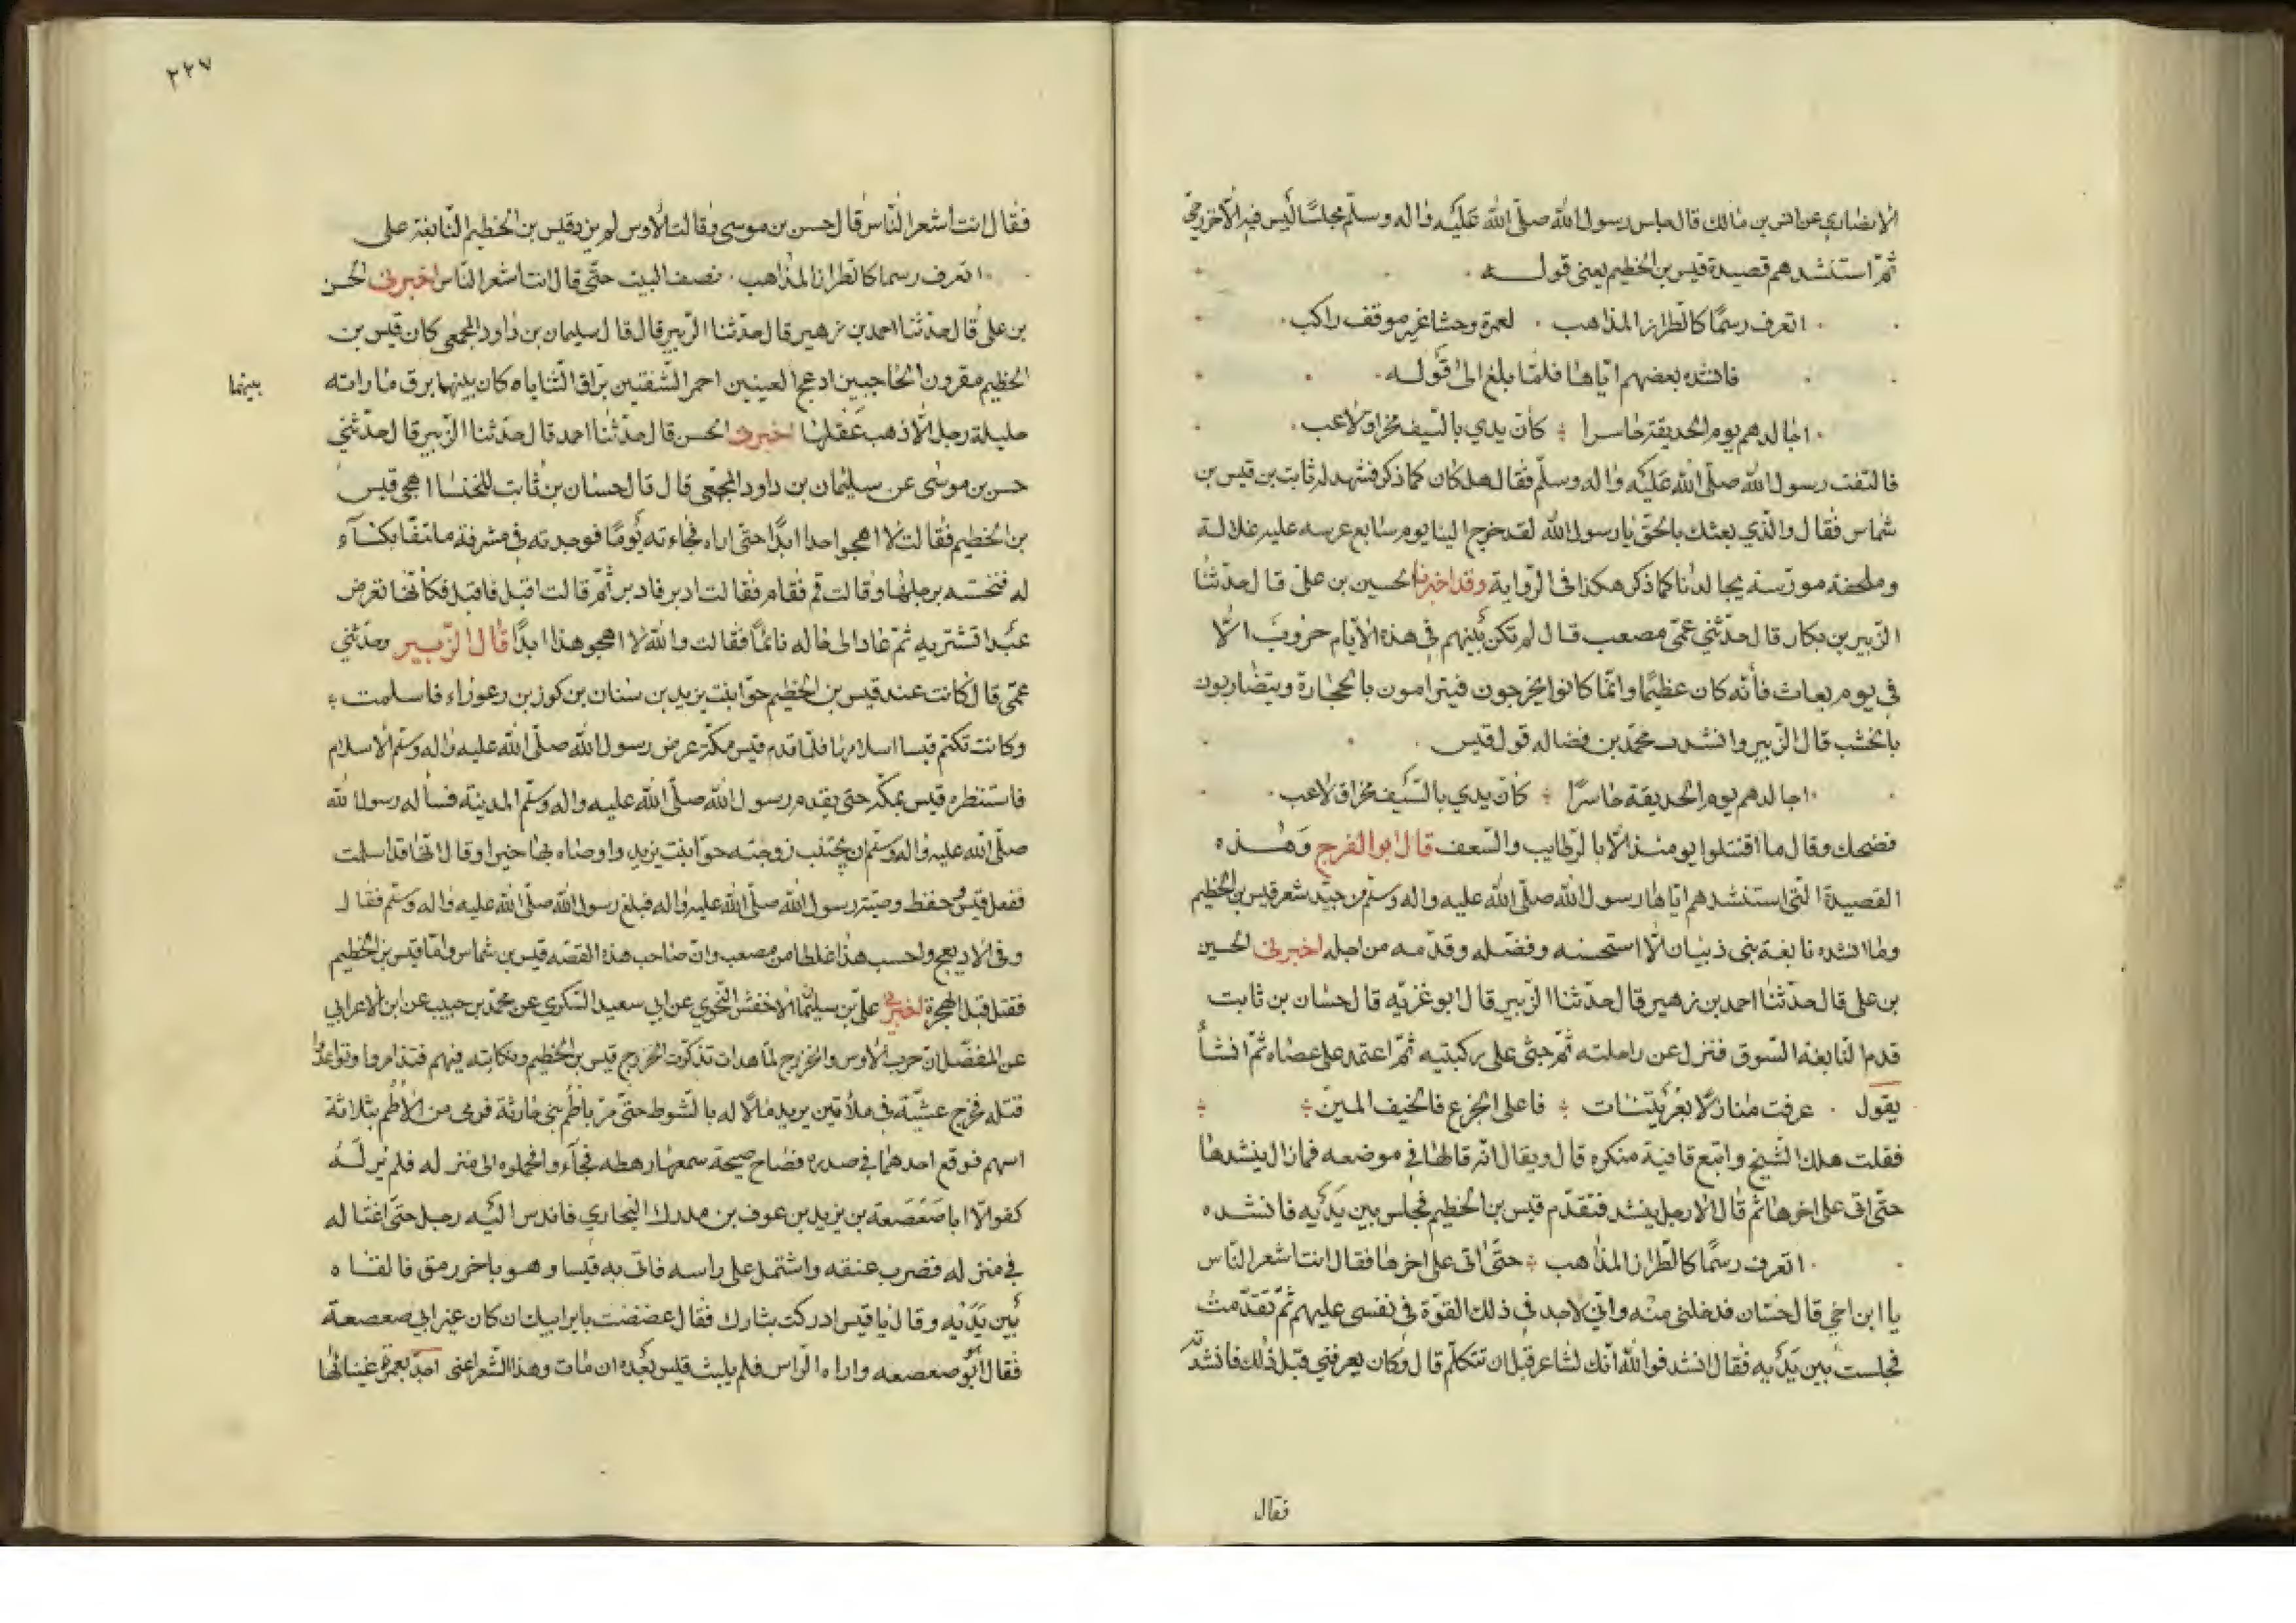 الانصاري عن انس بن مالك قال جلس رسول الله صلّى الله عَليْه واله وسلّم مجلسًا ليس فيه الّا خزرجيّ
ثمّ استنشدهم قصيدة قيس بن الخطيم يعني قولـــه
اتعرف رسمًا كاطراز المذاهب . لعمرة وحشا غير موقف راكب
فانشده بعضهم ايّاها فلمّا بلغ الى قوله
اجالدهم يوم الحديقة حاسرا ؛ كأن يدي بالسّيف مخراق لاعب
فالتفت رسول الله صلّى الله عَليْه واله وسلّم فقال هل كان كما ذكر فشهد له ثابت بن قيس بن
شماس فقال والّذي بعثك بالحقّ يا رسول الله لقد خرج الينا يوم سابع عرسه عليه غلالة
وملحفة مورّسة يجالدنا كما ذكر هكذا في الرّواية وقد اخبرنا الحسين بن علي قال حدّثنا
الزّبير بن بكار قال حدّثني عمّي مصعب قال لم تكن بينهم في هذه الأيام حروبَ الّا
في يوم بعاث فأنّه كان عظيمًا وانّما كانوا يخرجون فيترامون بالحجارة ويتضاربون
بالخشب قال الزّبير وانشدت محمّد بن فضاله قول قيس
اجالدهم يوم الحديقة حاسرًا ؛ كأن يدي بالسّيف مخراق لاعب
فضحك وقال ما اقتتلوا يومئذ الّا بالرّطايب والسّعف قال ابو الفرج وهـــذه
القصيدة الّتي استنشدهم ايّاها رسول الله صلّى الله عليه واله وسلّم من جيّد شعر قيس بن الخطيم
وما انشده نابغة بني ذبيان الّا استحسنه وفضّله وقدّمه من اجله اخبرني الحسين
بن علي قال حدّثنا احمد بن زهير قال حدّثنا الزّبير قال ابو غزيّه قال حسّان بن ثابت
قدم النّابغة السّوق فنزل عن راحلته ثمّ جثى على ركبتيه ثمّ اعتمد على عصاه ثمّ انشأ
يقول . عرفت منازلًا بعُرَيتنات ؛ فاعلى الجزع فالخيف المبنّ ؛
فقلت هلك الشّيخ واتبع قافية منكره قال ويقال انّه قالها في موضعه فما زال ينشدها
حتّى اتى على اخرها ثم قال الا رجل ينشد فتقدّم قيس بن الخطيم فجلس بين يَديه فانشده
اتعرف رسمًا كالطّراز المذاهب ؛ حتّى اتى على اخرها فقال انت اشعر النّاس
يا ابن اخي قال حسّان فدخلني منه وانّي لاجد في ذلك القوّة في نفسي عليهم ثمّ تقدّمت
فجلست بين يَديه فقال انشد فوالله انّك لشاعر قبل ان تتكلّم قال وكان يعرفني قبل ذلك فانشدته
فقال
٢٢٧
فقال انت اشعر النّاس قال حسن بن موسى وقالت الأوس لم يزد قيس بن الخطيم النّابغة على
اتعرف رسما كاطراز المذاهب . نصف البيت حتّى قال انت اشعر النّاس اخبرني الحسن
بن علي قال حدّثنا احمد بن زهير قال حدّثنا الزّبير قال قال سليمان بن داود المجمعي كان قيس بن
الخطيم مقرون الحاجبين ادعج العينين احمر الشّفتين برّاق الثّناياه كان بينهما برق ما راته
بينهما
حليلة رجل الّا ذهب عَقلها اخبرني الحسن قال حدّثنا احمد قال حدّثنا الزّبير قال حدّثني
حسن بن موسى عن سليمان بن داود المجمّعي قال قال حسّان بن ثابت للخنسا اهجي قيس
بن الخطيم فقالت لا اهجوا احدا ابدًا حتّى اراه فجاءته يومًا فوجدته في مشرفة ملتفًا بكسآء
له فنخسته برجلها وقالت قم فقام فقالت ادبر فادبر ثمّ قالت اقبل فاقبل فكأنّها تعرض
عبدا تشتريه ثمّ عاد الى حاله نائمًا فقالت والله لا اهجو هذا ابدًا قال الزّبير وحدّثني
عمّي قال كانت عند قيس بن الخطيم حوّا بنت يزيد بن سنان بن كوز بن زعوراء فاسلمت
وكانت تكتم قيسا اسلامها فلمّا قدم قيس مكّة عرض رسول الله صلّى الله عليه واله وسلّم الاسلام
فاستنظره قيس بمكّة حتى يقدم رسول الله صلّى الله عليه واله وسلّم المدينة فسأله رسول الله
صلّى الله عليه واله وسلّم ان يجتنب زوجته حوّا بنت يزيد واوصاه بها خيرا وقال انّها قد اسلمت
ففعل قيس وحفظ وصيّة رسول الله صلّى الله عليه واله فبلغ رسول الله صلّى الله عليه واله وسلّم فقال
وفى الاديعج واحسب هذا غلطا من مصعب وانّ صاحب هذه القصّه قيس بن شماس وامّا قيس بن الخطيم
فقتل قبل الهجرة اخبرني عليّ بن سليمان الاخفش النّحوي عن ابي سعيد السّكري عن محمّد بن حبيب عن ابن الاعرابي
عن المفضّل انّ حرب الأوس والخزرج لمّا هدات تذكّرت الخزرج قيس بن الخطيم ونكايته فيهم فتذامروا وتواعدُوا
قتله فخرج عشيّة في ملأتين يريد مالًا له بالشّوط حتى مرّ باطُم بني حارثة فرمى من الأطُم بثلاثة
اسهم فوقع احدهما في صدره فصاح صيحة سمعها رهطه فجآءوا فحملوه الى منزله فلم يَر لـــه
كفوا الّا ابا صَعصَعة بن يزيد بن عوف بن مدرك النّجاري فاندس اليه رجل حتّى اغتاله
في منزله فضرب عنقه واشتمل على راسه فاتى به قيسا وهو باخر رمق فالقاه
بين يَدَيه وقال يا قيس ادركت بثارك فقال عضضت باير ابيك ان كان غير ابي صعصعة
فقال ابو صعصعه واراه الرّاس فلم يلبث قيس بَعده ان مات وهذا الشّعر اعني اجدّ بعمرة غنيانها